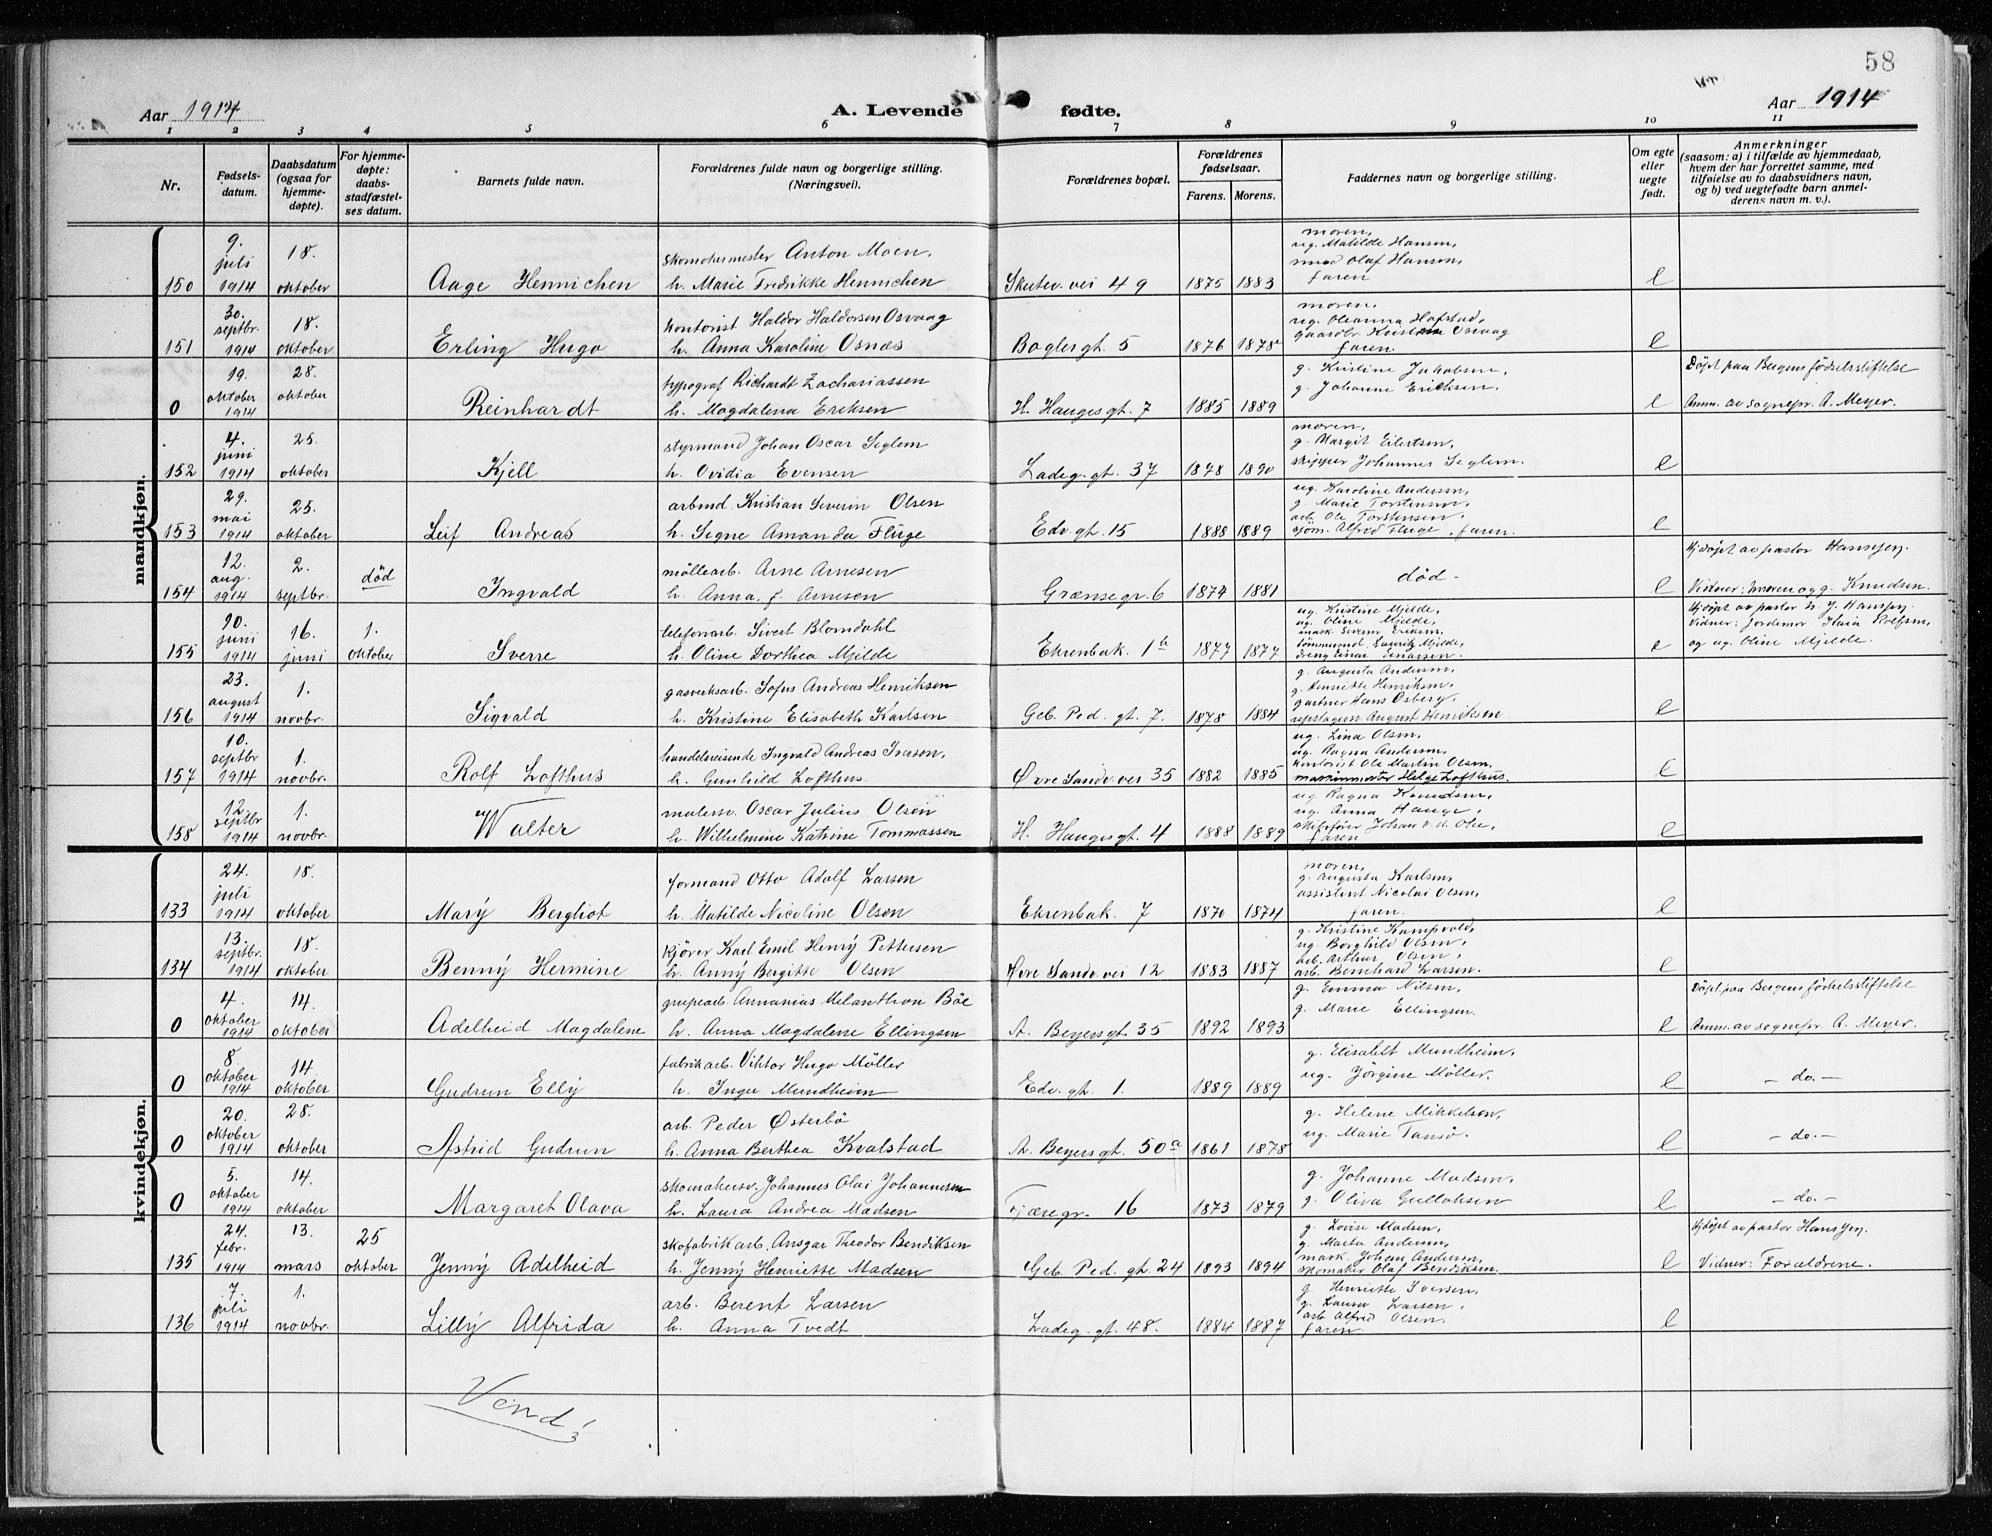 58
Aar 1914 A. Levende fødte. Aar 1914
1 2 3 4 5 6 7 8 9 10 11
Nr. Fødsels-datum. Daabsdatum (ogsaa for hjemme-døpte). For hjemme-døpte: daabs-stadfæstel-ses datum. Barnets fulde navn. Forældrenes fulde navn og borgerlige stilling. (Næringsvei). Forældrenes bopæl. Forældrenes fødselsaar. Farens. Morens. Faddernes navn og borgerlige stilling. Om egte eller uegte født. Anmerkninger (saasom: a) i tilfælde av hjemmedaab, hvem der har forrettet samme, med tilføielse av to daabsvidners navn, og b) ved uegtefødte barn anmel-derens navn m. v.).
mandkjøn.
150 9. juli 1914 18. oktober Aage Hennichen skomakermester Anton Moen, h. Marie Fredrikke Hennichen Skutev. vei 49 1875 1883 moren, ug. Matilde Hansen, smed Olaf Hansen, faren e
151 30. septbr. 1914 18. oktober Erling Hugo kontorist Haldor Haldorsen Osvaag h. Anna Karoline Osnæs Baglergt. 5 1876 1878 moren, ug. Oleanna Hofstad, gaardbr. Kristian Osvaag faren. e
0 19. oktober 1914 28. oktober Reinhardt typograf Richardt Zachariassen h. Magdalena Eriksen H. Hauges gt. 7 1885 1889 g. Kristine Jakobsen, g. Johanne Erichsen. e Döpt paa Bergens födselsstiftelse Anm. av sognepr. A. Meyer.
152 4. juni 1914 25. oktober Kjell styrmand Johan Oscar Seglem h. Ovidia Evensen Ladeg. gt. 37 1878 1890 moren, g. Margit Eilertsen, skipper Johannes Seglem. e
153 29. mai 1914 25. oktober Leif Andreas arbmd Kristian Severin Olsen h. Signe Amanda Flüge Edv. gt. 15 1888 1889 ug. Karoline Andersen, g. Marie Torstensen, arb. Ole Torstensen, sjöm. Alfred Fluge, faren. e
154 12. aug. 1914 2. septbr. död Ingvald möllearb. Arne Arnesen h. Anna f. Arnesen Grænsegr. 6 1874 1881 död - e Hjdöpt av pastor Hansen. Vidner: moren og g. Knudsen.
155 20. juni 1914 16. juni 1. oktober Sverre telefonarb. Sivert Blomdahl h. Oline Dorthea Mjelde Ehrenbak. 1a 1877 1877 ug. Kristine Mjelde, ug. Oline Mjelde, mask. Severin Eriksen, tömmermd. Lauritz Mjelde, e Hjdöpt av pastor Vidner: Jordemor og ug. Oline Mjelde.
156 23. august 1914 1. novbr. Sigvald gasverksarb. Sofus Andreas Henriksen h. Kristine Elisabeth Karlsen Geb. Ped. gt. 7. 1878 1884 g. Augusta Andersen, g. Henriette Henriksen, gartner Hans Osberg, repslagersv. August Henriksen e
157 10. septbr 1914 1. novbr. Rolf Lofthus handelsreisende Ingvald Andreas Iversen, h. Gunhild Lofthus. Øvre Sandv. vei 35 1882 1885 ug. Lina Olsen, ug. Ragna Andersen, kontorist Ole Martin Olsen, maskinmester Helge Lofthus. e
158 12. septbr 1914 1. novbr. Walter malersv. Oscar Julius Olsen h. Wilhelmine Katrine Tommassen H. Hauges gt. 4 1888 1889 ug. Ragna Knudsen, ug. Anna Hauge, skibsfører Johan v. d. Ohe, faren e
kvindekjøn.
133 24. juli 1914 18. oktober Marÿ Bergliot formand Otto Adolf Larsen h. Matilde Nicoline Olsen Ehrenbak. 7 1870 1874 moren, g. Augusta Karlsen, assistent Nicolai Olsen, faren. e
134 13. septbr. 1914 18. oktober Bennÿ Hermine kjörer Karl Emil Henrÿ Pettersen h. Annÿ Bergitte Olsen Øvre Sandv. vei 12 1883 1887 g. Kristine Kampvold, ug. Borghild Olsen, arb. Arthur Olsen, arb. Bernhard Larsen. e
0 4. oktober 1914 14. oktober Adelheid Magdalene grubearb. Annanias Melanthron Böe h. Anna Magdalene Ellingsen A. Beyers gt. 35 1892 1893 g. Emma Nilsen, g. Marie Ellingsen. e Döpt paa Bergens födselsstiftelse Anm. av sognepr. A. Meyer.
0 8. oktober 1914 14. oktober Gudrun Ellÿ fabrikarb. Viktor Hugo Möller h. Inga Mundheim Edv. gt. 1. 1889 1889 g. Elisabet Mundheim, ug. Jörgine Möller. e - do. -
0 20. oktober 1914 28. oktober Astrid Gudrun arb. Peder Østerbö h. Anna Berthea Kvalstad A. Beyers gt. 50a 1861 1878 g. Helene Mikkelsen, ug. Marie Tansö. e - do. -
0 5. oktober 1914 14. oktober Margaret Olava skomakersv. Johannes Olai Johannesen h. Laura Andrea Madsen Fjæregr. 16 1873 1879 g. Johanne Madsen, g. Oliva Gullaksen e - do. -
135 24. febr. 1914 13. mars 25 oktober Jennÿ Adelheid skofabrikarb. Ansgar Theodor Bendiksen h. Jennÿ Henriette Madsen Geb. Ped. gt. 24 1893 1894 g. Lovise Madsen, g. Marta Andersen, mask. Johan Andersen, skomaker Olaf Bendiksen. e Hjdöpt av pastor Hansen. Vidner: Forældrene.
136 7. juli 1914 1. novbr. Lillÿ Alfrida arb. Berent Larsen h. Anna Tvedt Ladeg. gt. 48. 1884 1887 g. Henriette Iversen, g. Laura Larsen, arb. Alfred Olsen, faren. e
Vend!